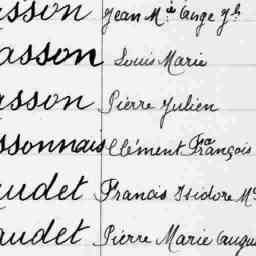 asson Jean M.ie Ange
asson Louis Marie
asson Pierre Julien
ssonnais Clément François
audet Francis Isidore
audet Pierre Marie